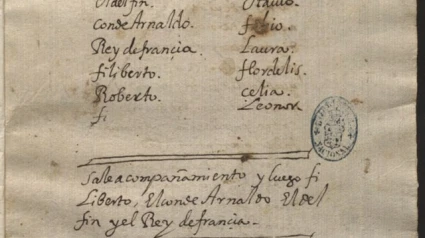 El delfin. Otavio.
Conde Arnaldo. fabio.
Rey de francia. Laura.
filiberto. flordelis.
Roberto. celia.
fi Leonor.
Sale acompañamiento y luego fi
Liberto, El conde Arnaldo El del
fin y el Rey de francia.